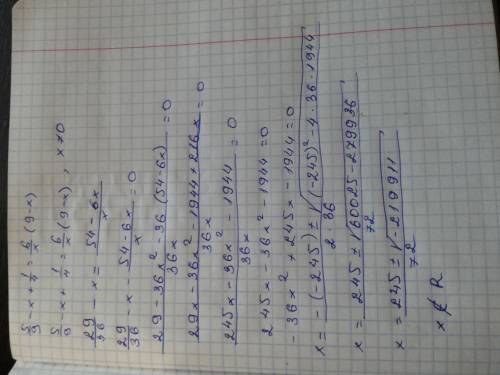 5/9 - x + 1/4 = 6/x (9-x)
5/9 - x + 1/4 = 6/x (9-x), x≠0
29/36 - x = (54-6x)/x
29/36 - x - (54-6x)/x = 0
(29-36x²-36(54-6x))/36x = 0
(29x-36x²-1944+216x)/36x = 0
(245x-36x²-1944)/36x = 0
245x-36x²-1944=0
-36x²+245x-1944=0
x = (-(-245) ± √((-245)²-4·36·1944))/(2·36)
x = (245 ± √(60025-279936))/72
x = (245 ± √(-219911))/72
x ∉ R